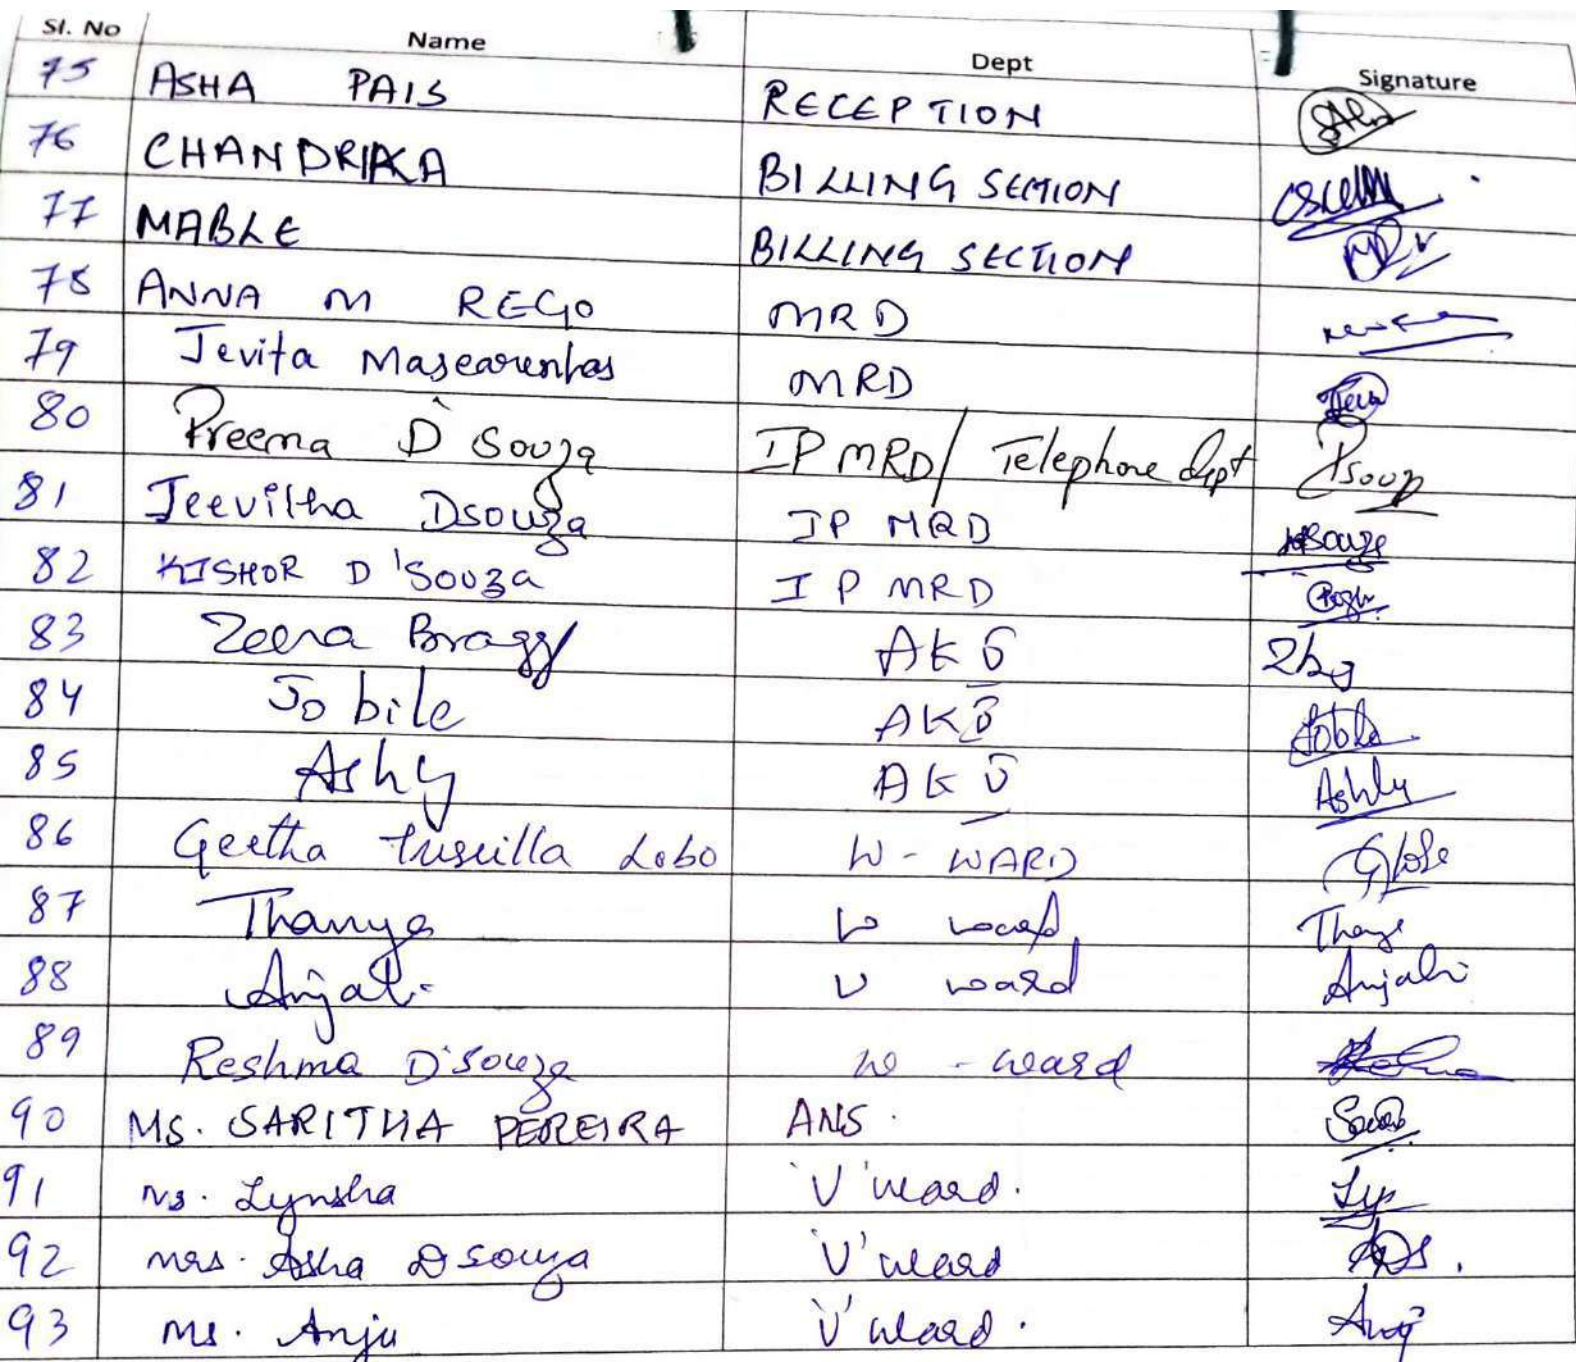 Sl. No Name Dept Signature
75 ASHA PAIS RECEPTION
76 CHANDRIKA BILLING SECTION
77 MABLE BILLING SECTION
78 ANNA M REGO MRD
79 Jevita Mascarenhas MRD
80 Preema D'Souza IP MRD/ Telephone dept
81 Jeevitha Dsouza IP MRD
82 KISHOR D'Souza IP MRD
83 Zeena Braggy AK
84 Jobile AK
85 Ashly AK Ashly
86 Geetha Priscilla Lobo W - WARD
87 Thanya ward
88 Anjali V ward Anjali
89 Reshma D'Souza w - ward
90 MS. SARITHA PEREIRA ANS.
91 Ms. Lynsha 'V' ward.
92 Mrs. Asha Dsouza 'V' ward
93 Ms. Anju 'V' ward.